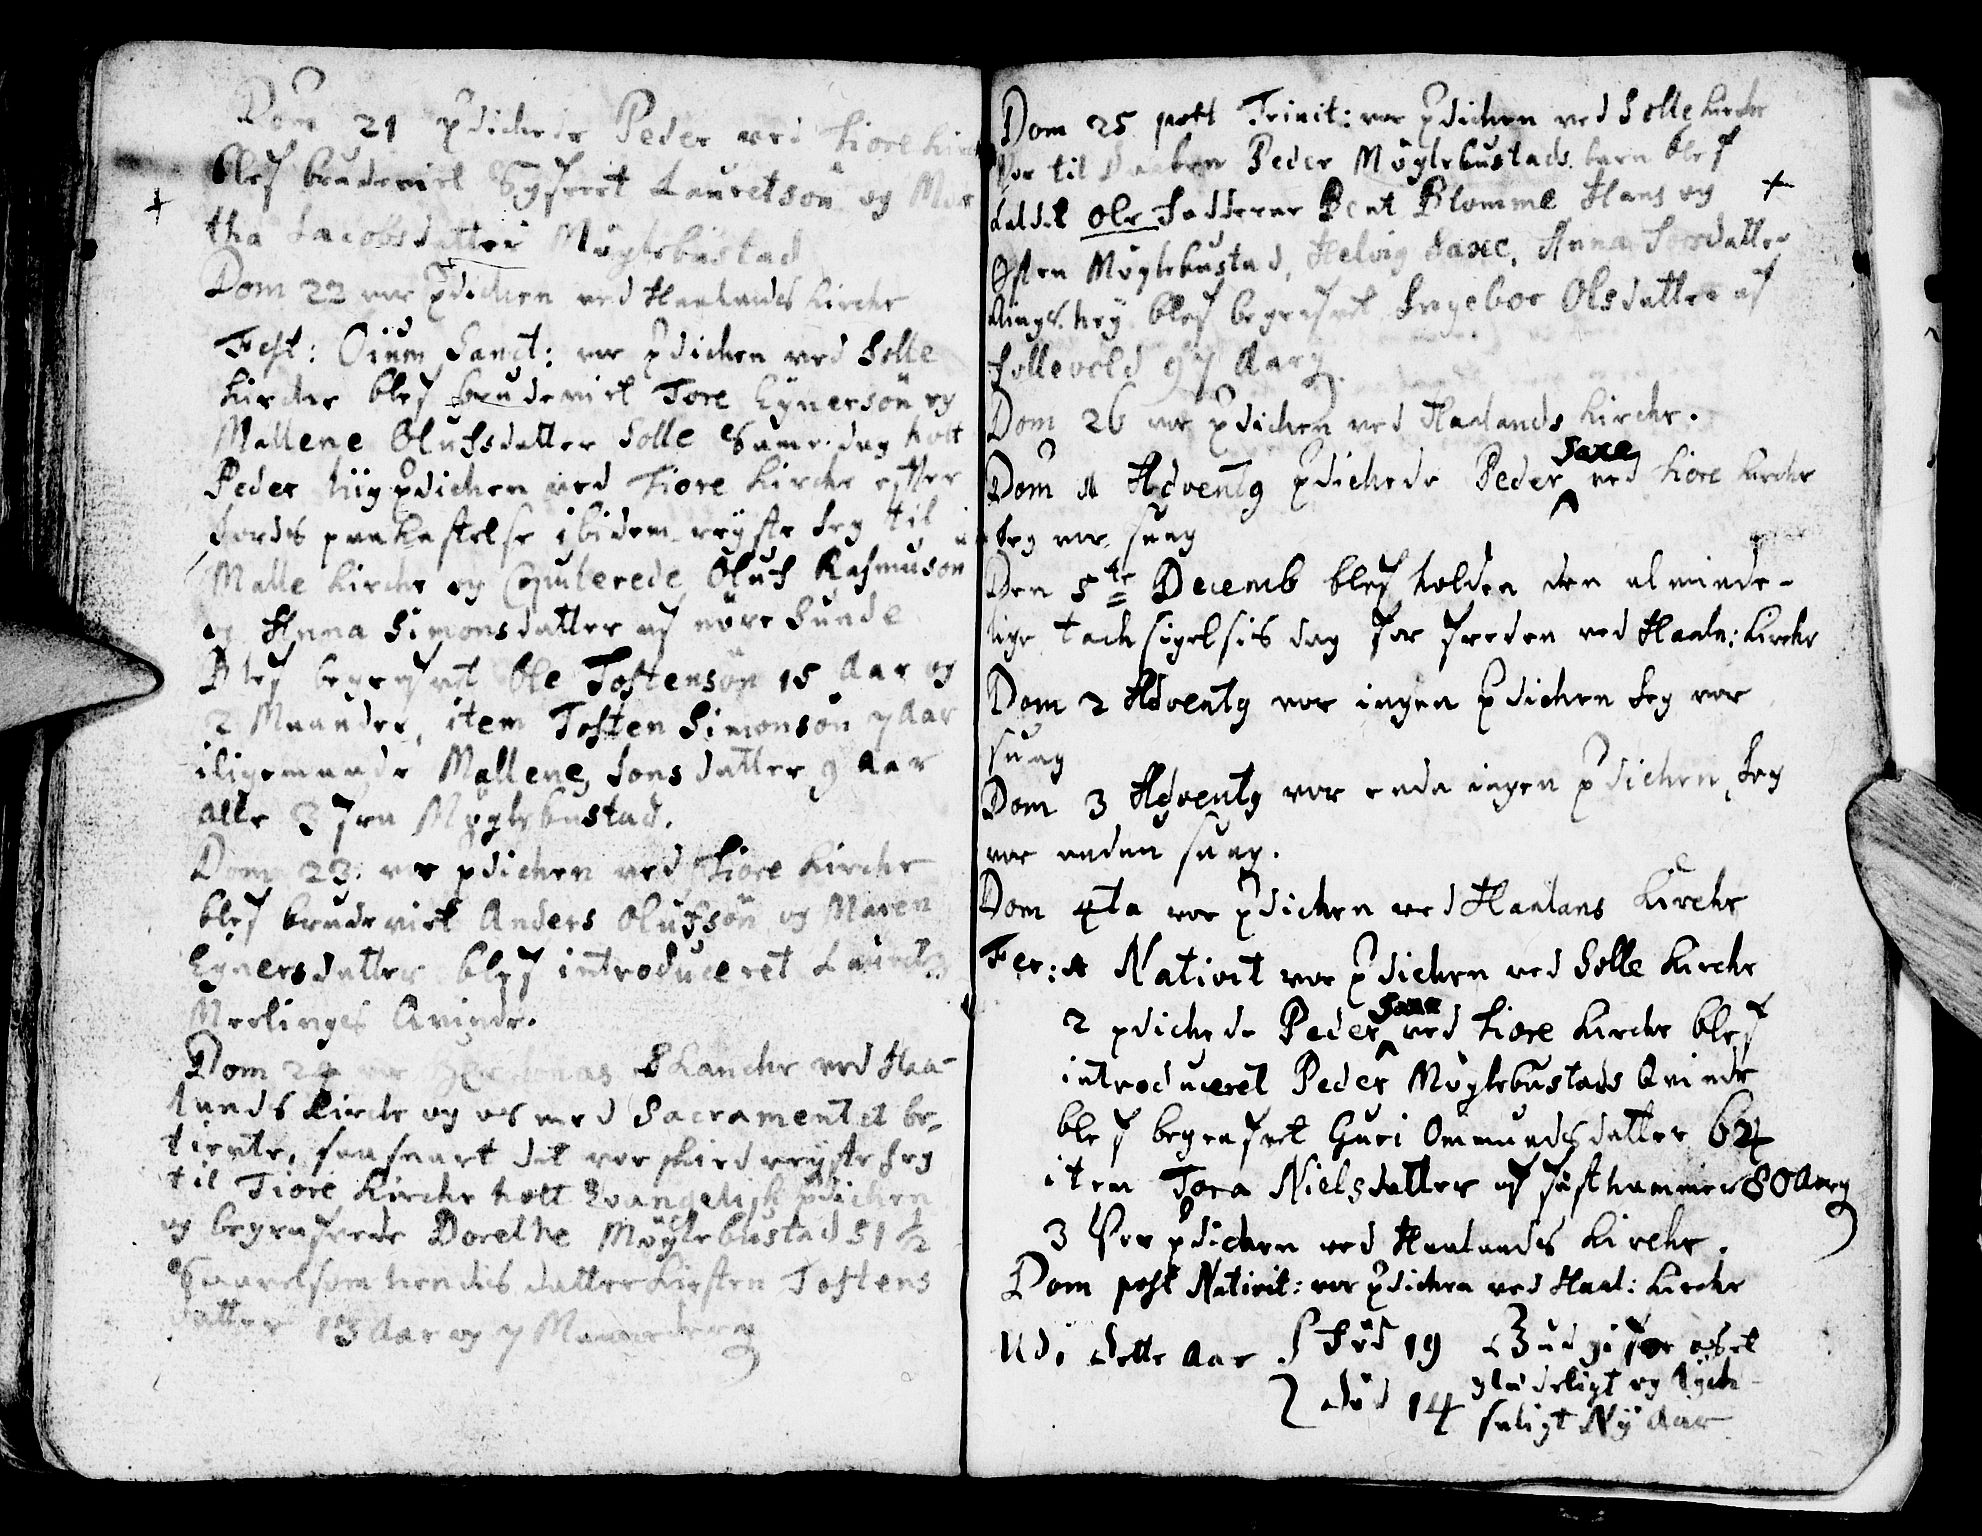 Dom 21 pdichede Peder ved Fiore Kirch
blef brudeviet Syfvert Lauretsön og Mar
tha Jacobsdatter Möglebustad
Dom 22 var pdichen ved Haalands Kirche
Fest: Oium Sanct: var pdichen ved Solle
Kirche blef brudeviet Tore Eynersön og
Mallene Olufsdatter Solle Same dag holt
Peder hiig pdichen ved Fiore Kirche efter
Jords paakastelse ibidem reyste Jeg til
Malle Kirche og Copulerede Oluf Rasmusön
og Anna Simonsdatter af nöre Sunde
Blef begrafvet Ole Tostensön 15 Aar og
2 Maander, item Tosten Simonsön 7 Aar
iligemaade Mallene Jonsdatter 9 Aar
alle 3 fra Möglebustad.
Dom 23. var pdichen ved Fiore Kirche
blef brudeviet Anders Olufsön og Maren
Eynersdatter blef introduceret Lauritz
Meelinges Qvinde.
Dom 24 var Her Jonas Schanche ved Haa-
lands Kirche og os med Sacramentet be-
tiente, saasnart det var skied reyste Jeg
til Fiore Kirche holt Evangelisk pdichen
og begrafvede Dorethe Möglebustad 51 1/2
Saavelsom hendis datter Kirsten Tostens
datter 13 Aar og 7 Maander
Dom 25 post Trinit: var pdichen ved Solle Kirche
Var til Daaben Peder Möglebustads barn blef
kaldet Ole Fadderne Bent Blomme Hans og
Östen Möglebustad, Helvig Saxe, Anna Jonsdatter
blef begrafvet Ingebor Olsdatter af
Sollevold 97 Aar
Dom 26 var pdichen ved Haalands Kirche.
Dom 1 Adventq pdichede Peder Saxe ved Fiore Kirche
Jeg var svag
Den 5te Decemb blef holden den alminde-
lige tachsigelsis dag for freden ved Haala: Kirche
Dom 2 Adventq var ingen pdichen Jeg var
svag
Dom 3 Adventq var enda ingen pdichen, Jeg
var endnu svag.
Dom 4ta var pdichen ved Haalans Kirche
Fer: 1 Nativit var pdichen ved Solle Kirche
2 pdichede Peder Saxe ved Fiore Kirche blef
introduceret Peder Möglebustads Qvinde
blef begrafvet Guri Ommundsdatter 64
item Tora Nielsdatter af 80 Aarg
3 Var pdichen ved Haalandis Kirche.
Dom post Nativit: var pdichen ved Haal: Kirche
Udi dette Aar Föd 19 Gud gifve os et
Död 14 gladeligt og lyck-
saligt Ny Aar